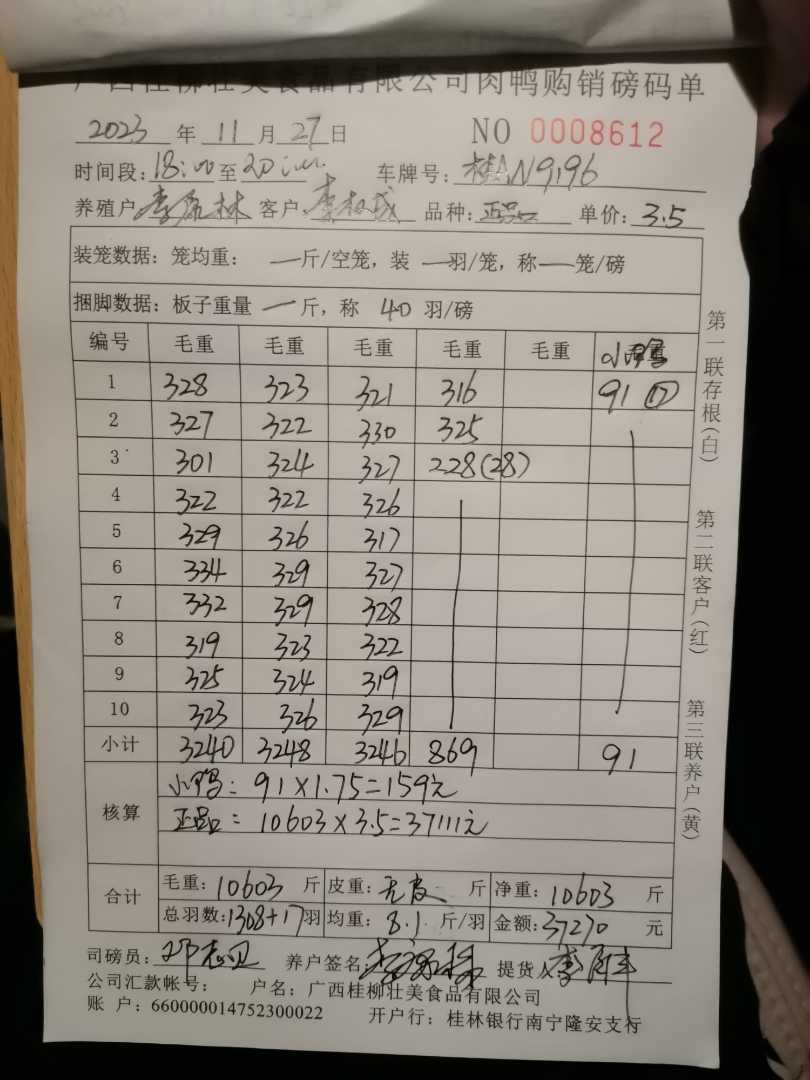 广西桂柳壮美食品有限公司肉鸭购销磅码单
2023 年 11 月 27 日 NO 0008612
时间段: 18:00 至 20 车牌号: 桂AN9196
养殖户 李 林 客户 李 成 品种: 正品 单价: 3.5
装笼数据: 笼均重: 一 斤/空笼, 装 一 羽/笼, 称 一 笼/磅
捆脚数据: 板子重量 一 斤, 称 40 羽/磅
编号 毛重 毛重 毛重 毛重 毛重 小鸭
1 328 323 321 316 91 (17)
2 327 322 330 325
3 301 324 327 228(28)
4 322 322 326
5 329 326 317
6 334 329 327
7 332 329 328
8 319 323 322
9 325 324 319
10 323 326 329
小计 3240 3248 3246 869 91
核算 小鸭: 91×1.75=159元
正品: 10603×3.5=37111元
合计 毛重: 10603 斤 皮重: 无皮 斤 净重: 10603 斤
总羽数: 1308+17 羽 均重: 8.1 斤/羽 金额: 37270 元
司磅员: 邓 养户签名: 提货人 李
公司汇款帐号: 户名: 广西桂柳壮美食品有限公司
账 户: 660000014752300022 开户行: 桂林银行南宁隆安支行
第一联存根(白)
第二联客户(红)
第三联养户(黄)